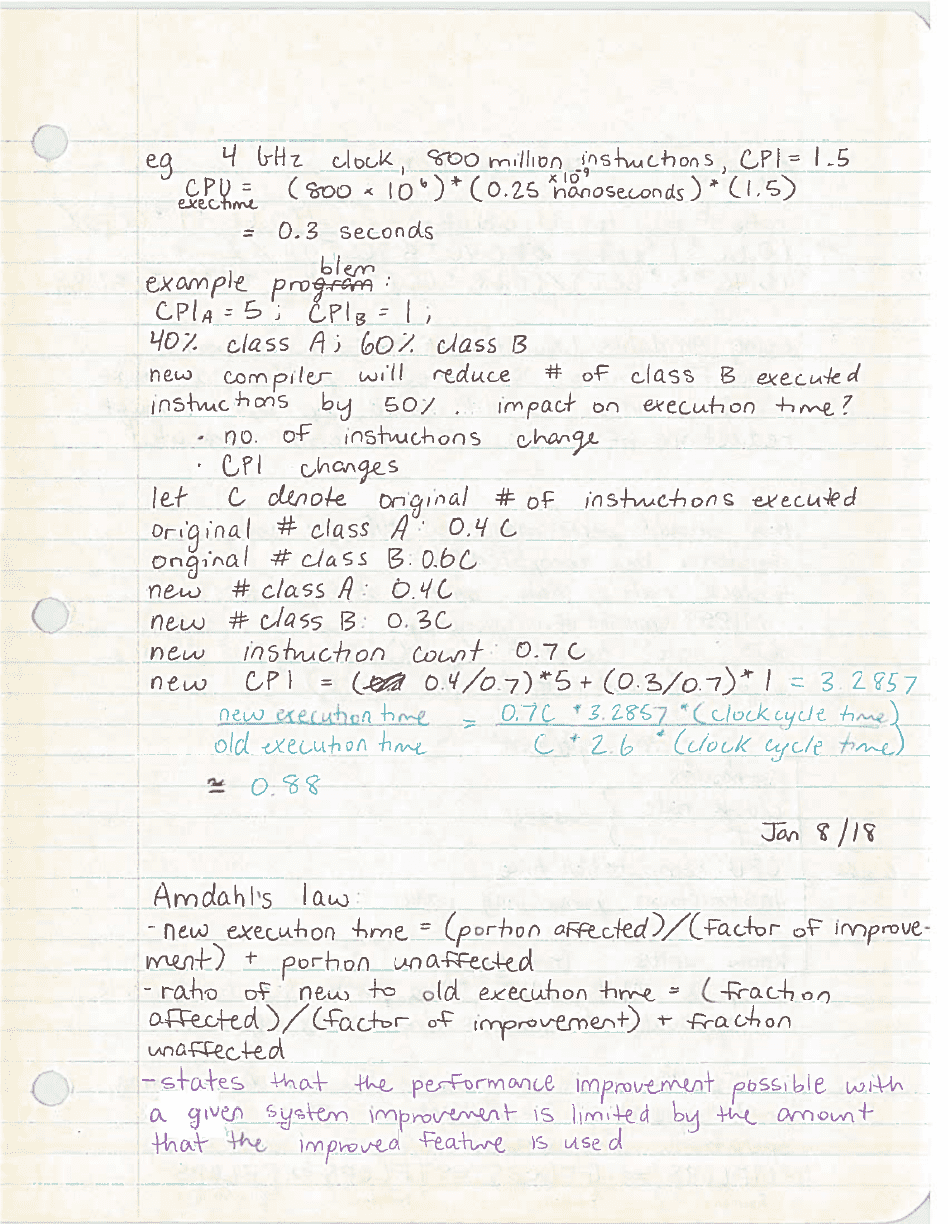 eg 4 GHz clock, 800 million instructions, CPI = 1.5
CPU exectime = (800 × 10^6) * (0.25 ×10^-9 nanoseconds) * (1.5)
= 0.3 seconds
example problem:
CPI_A = 5; CPI_B = 1;
40% class A; 60% class B
new compiler will reduce # of class B executed
instructions by 50%. impact on execution time?
· no. of instructions change
· CPI changes
let C denote original # of instructions executed
original # class A: 0.4C
original # class B: 0.6C
new # class A: 0.4C
new # class B: 0.3C
new instruction count: 0.7C
new CPI = (0.4/0.7)*5 + (0.3/0.7)*1 = 3.2857
new execution time = 0.7C * 3.2857 * (clock cycle time)
old execution time C * 2.6 * (clock cycle time)
≅ 0.88
Jan 8/18
Amdahl's law:
- new execution time = (portion affected)/(factor of improve-
ment) + portion unaffected
- ratio of new to old execution time = (fraction
affected)/(factor of improvement) + fraction
unaffected
- states that the performance improvement possible with
a given system improvement is limited by the amount
that the improved feature is used